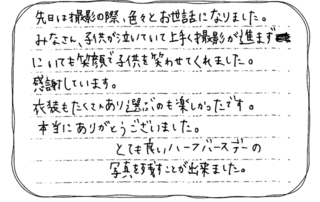 先日は撮影の際、色々とお世話になりました。
みなさん、子供が泣いていて上手く撮影が進まず
にいても笑顔で子供を笑わせてくれました。
感謝しています。
衣装もたくさんあり選ぶのも楽しかったです。
本当にありがとうございました。
とても良いハーフバースデーの
写真を残すことが出来ました。